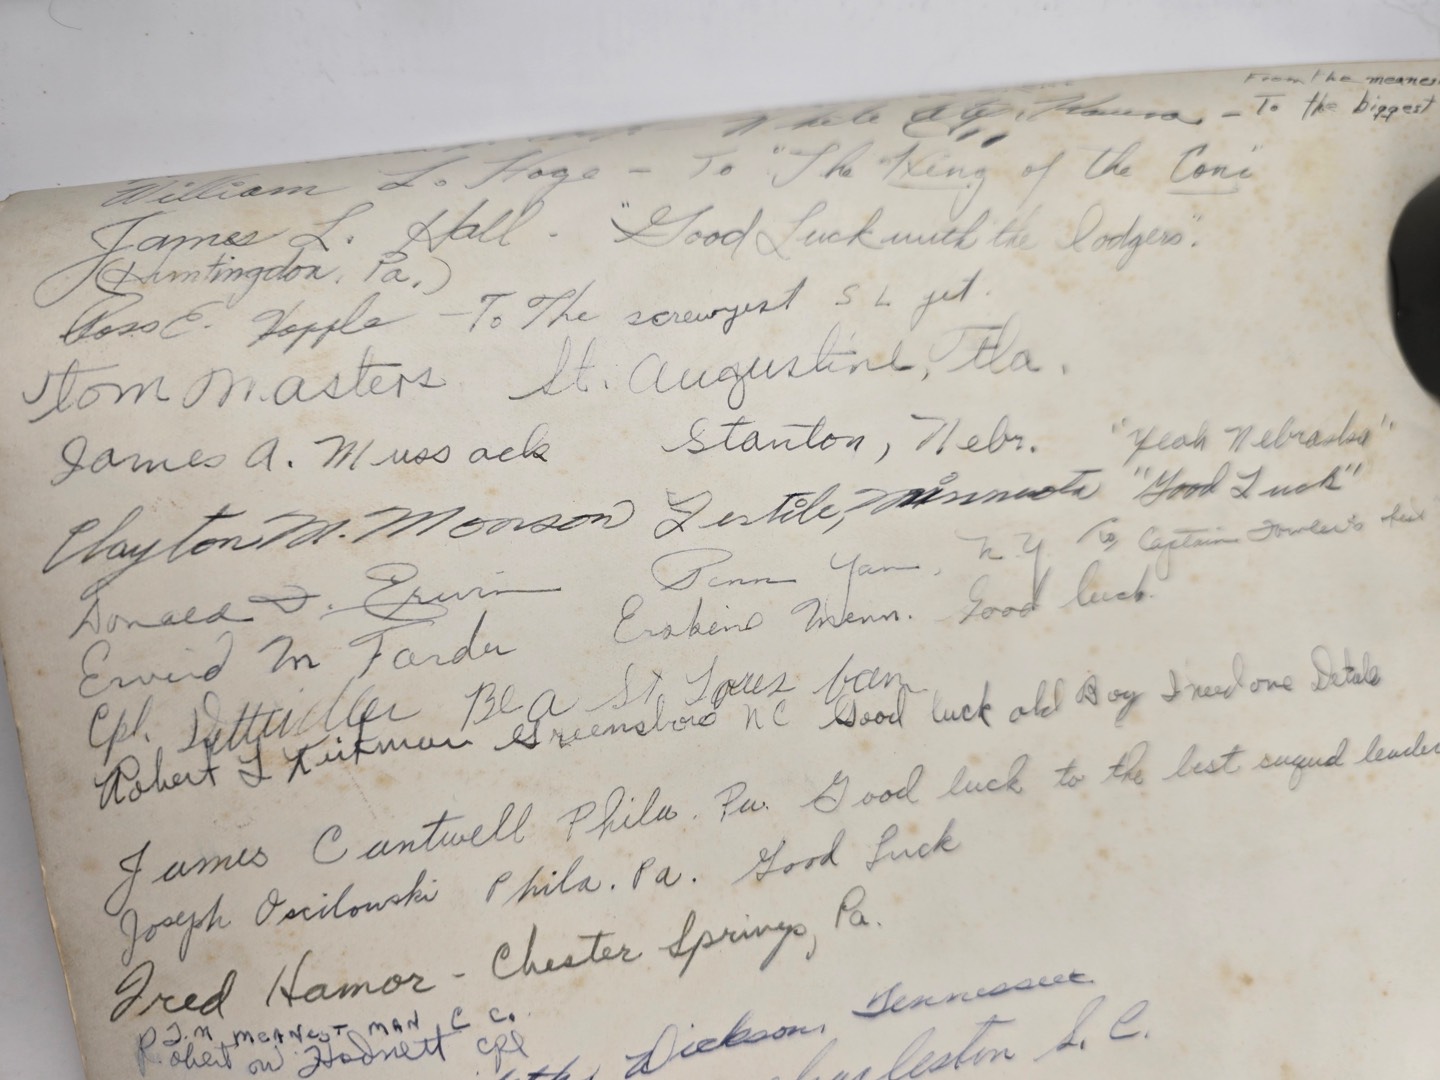 From the meanest
White City, Kansas - To the biggest
William L. Hoge - To "The King of the Coni"
James L. Hall - "Good Luck with the lodgers".
(Huntingdon, Pa.)
Ross E. Hopple - To The screwyest S L yet.
Tom Masters St. Augustine, Fla.
James A. Mussack Stanton, Nebr. "Yeah Nebraska"
Clayton M. Monson Fertile, Minnesota "Good Luck"
Donald J. Erwin Penn Yan, N Y To Captain Fowler's
Ervind M Farder Erskine Minn. Good luck.
Cpl. Be a St. Louis fan
Robert L Kirkman Greensboro NC Good luck old Boy I need one Details
James Cantwell Phila. Pa. Good luck to the best squad leader
Joseph Oscilowski Phila. Pa. Good Luck
Fred Hamor - Chester Springs, Pa.
MEANEST MAN C C.
Robert W. Hodnett Cpl
Dickson, Tennessee
Charleston S. C.